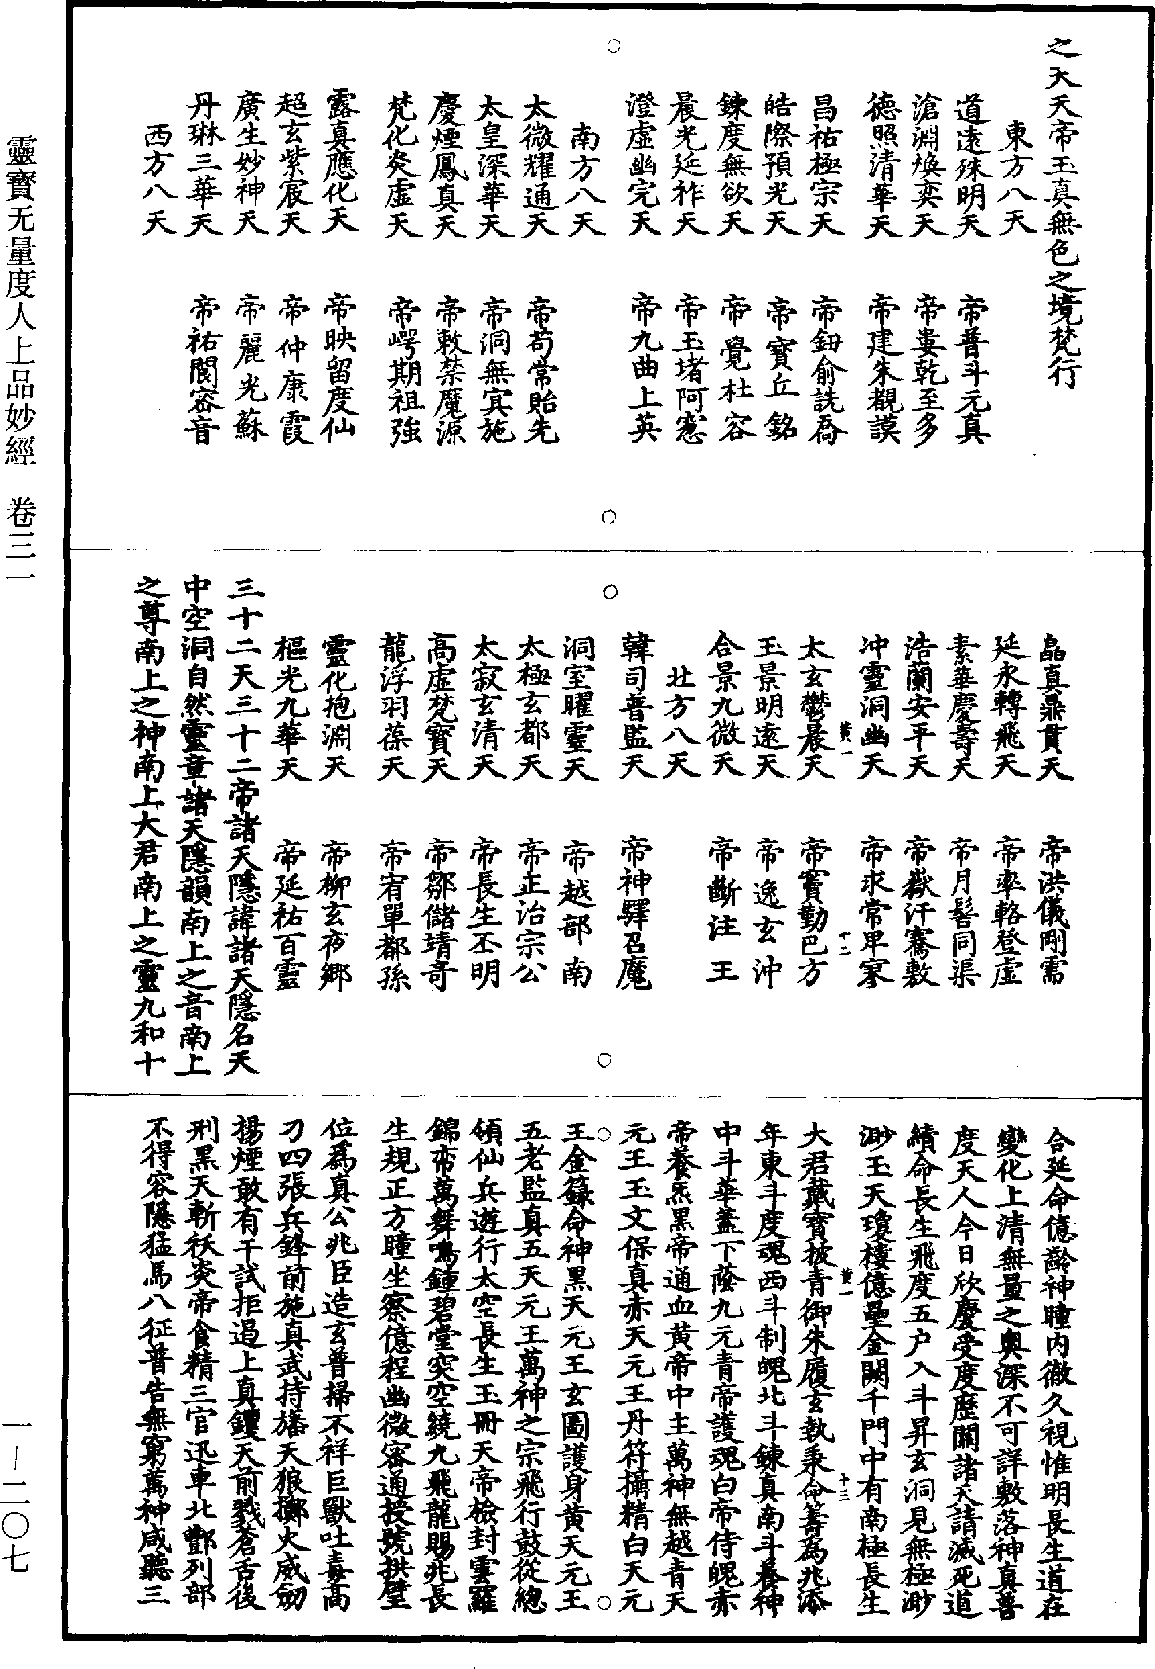 之大天帝玉真無色之境梵行
東方八天
道遠殊明天　帝普斗元真
滄淵煥奕天　帝婁乾至多
德照清華天　帝建朱覩謨
昌祐極宗天　帝鈕俞詵喬
皓際預光天　帝寶丘銘
鍊度無欲天　帝覺杜容
晨光延祚天　帝玉堵阿寔
澄虛幽完天　帝九曲上英
南方八天
太微耀通天　帝苟常貽先
太皇深華天　帝洞無宾施
慶煙鳳真天　帝敕禁魔源
梵化炎虛天　帝崿期祖強
露真應化天　帝映留度仙
超玄紫宸天　帝仲康霞
廣生妙神天　帝麗光蘇
丹琳三華天　帝祐閡容音
西方八天
晶真鼎貫天　帝洪儀剛需
延永轉飛天　帝率輅登虛
素華慶壽天　帝月髻同渠
浩蘭安平天　帝嶽汗騫敷
沖靈洞幽天　帝求常早寥
黃一　十二
太玄鬱晨天　帝竇勤巴方
玉景明遠天　帝逸玄沖
合景九微天　帝斷注王
北方八天
韓司普監天　帝神驛召魔
洞室曜靈天　帝越部南
太極玄都天　帝正治宗公
太寂玄清天　帝長生丕明
高虛梵寶天　帝鄒儲靖奇
龍浮羽葆天　帝宥單都孫
靈化抱淵天　帝柳玄夜鄉
樞光九華天　帝延祐百靈
三十二天三十二帝諸天隱諱諸天隱名天
中空洞自然靈章諸天隱韻南上之音南上
之尊南上之神南上大君南上之靈九和十
合延命億齡神瞳內徹久視惟明長生道在
變化上清無量之奧深不可詳敷落神真普
度天人今日欣慶受度歷關諸天請滅死道
續命長生飛度五户入斗昇玄洞見無極渺
渺玉天瓊樓億壘金闕千門中有南極長生
黃一　十三
大君戴寶披青御朱履玄執秉命籌為兆添
年東斗度魂西斗制魄北斗鍊真南斗養神
中斗華蓋下蔭九元青帝護魂白帝侍魄赤
帝養炁黑帝通血黃帝中主萬神無越青天
元王玉文保真赤天元王丹符攝精白天元
王金籙命神黑天元王玄圖護身黃天元王
五老監真五天元王萬神之宗飛行鼓從總
領仙兵遊行太空長生玉冊天帝檢封雲羅
錦帝萬舞鳴鍾碧堂突空繞九飛龍賜兆長
生規正方瞳坐察億程幽微密通授號拱璧
位為真公兆臣造玄普掃不祥巨獸吐毒高
刀四張兵鋒前施真武持旛天狼擲火威劒
揚煙敢有干試拒遏上真钁天前戮蒼舌後
刑黑天斬祅炎帝食精三官迅車北酆列部
不得容隱猛馬八征普告無窮萬神咸聽三
靈寶无量度人上品妙經　卷三一
一―二〇七